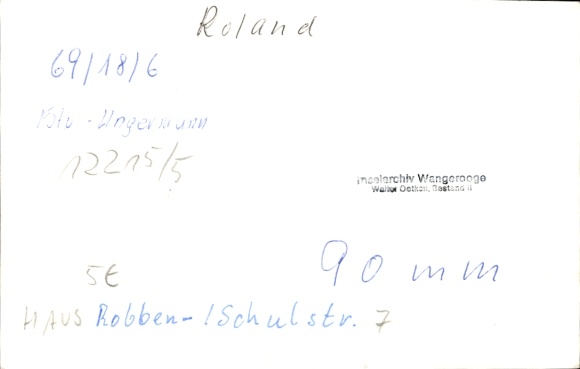 Roland
69/18/6
Foto-Ungermann
12215/5
Inselarchiv Wangerooge
Walter Oetken, Bestand II
90 mm
5€
HAUS Robben-/Schulstr. 7